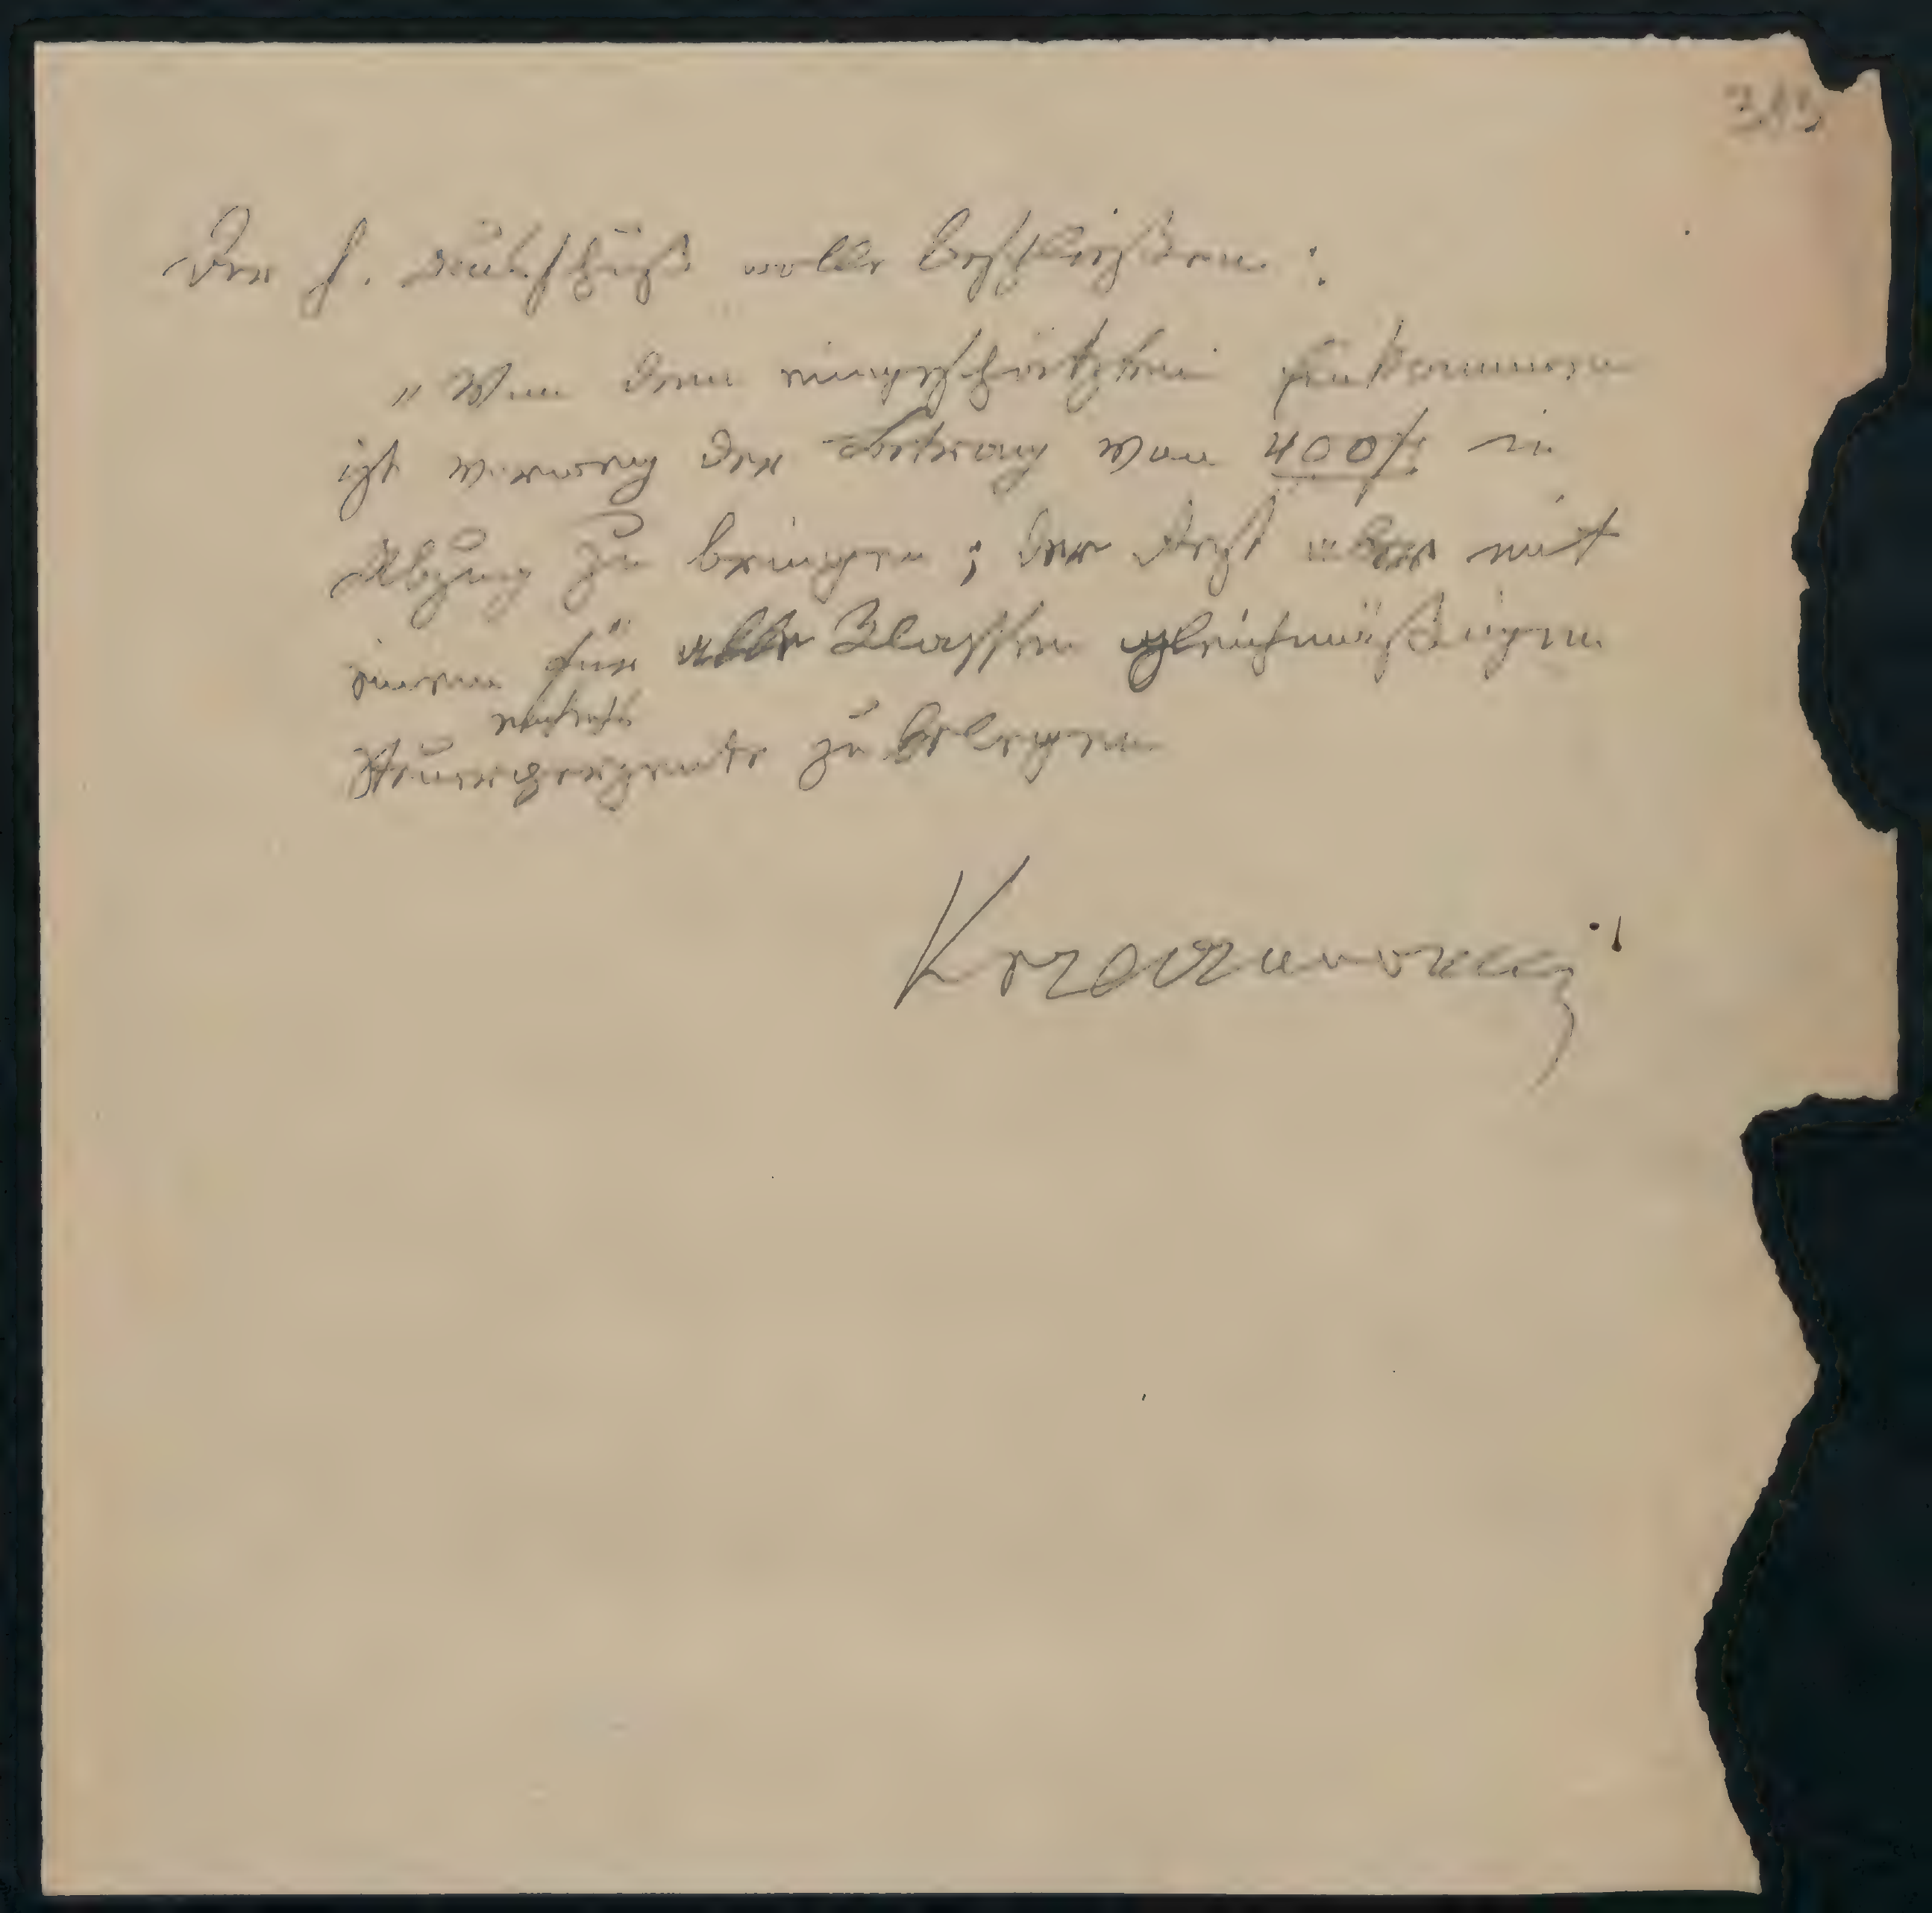 Der h. Ausschuß wolle beschließen:
„Von dem eingeschätzten Einkommen
ist vorweg der Betrag von 400 f. in
Abzug zu bringen; der Rest aber mit
einem für alle Klassen gleichmäßigen
Steuerperzente zu belegen